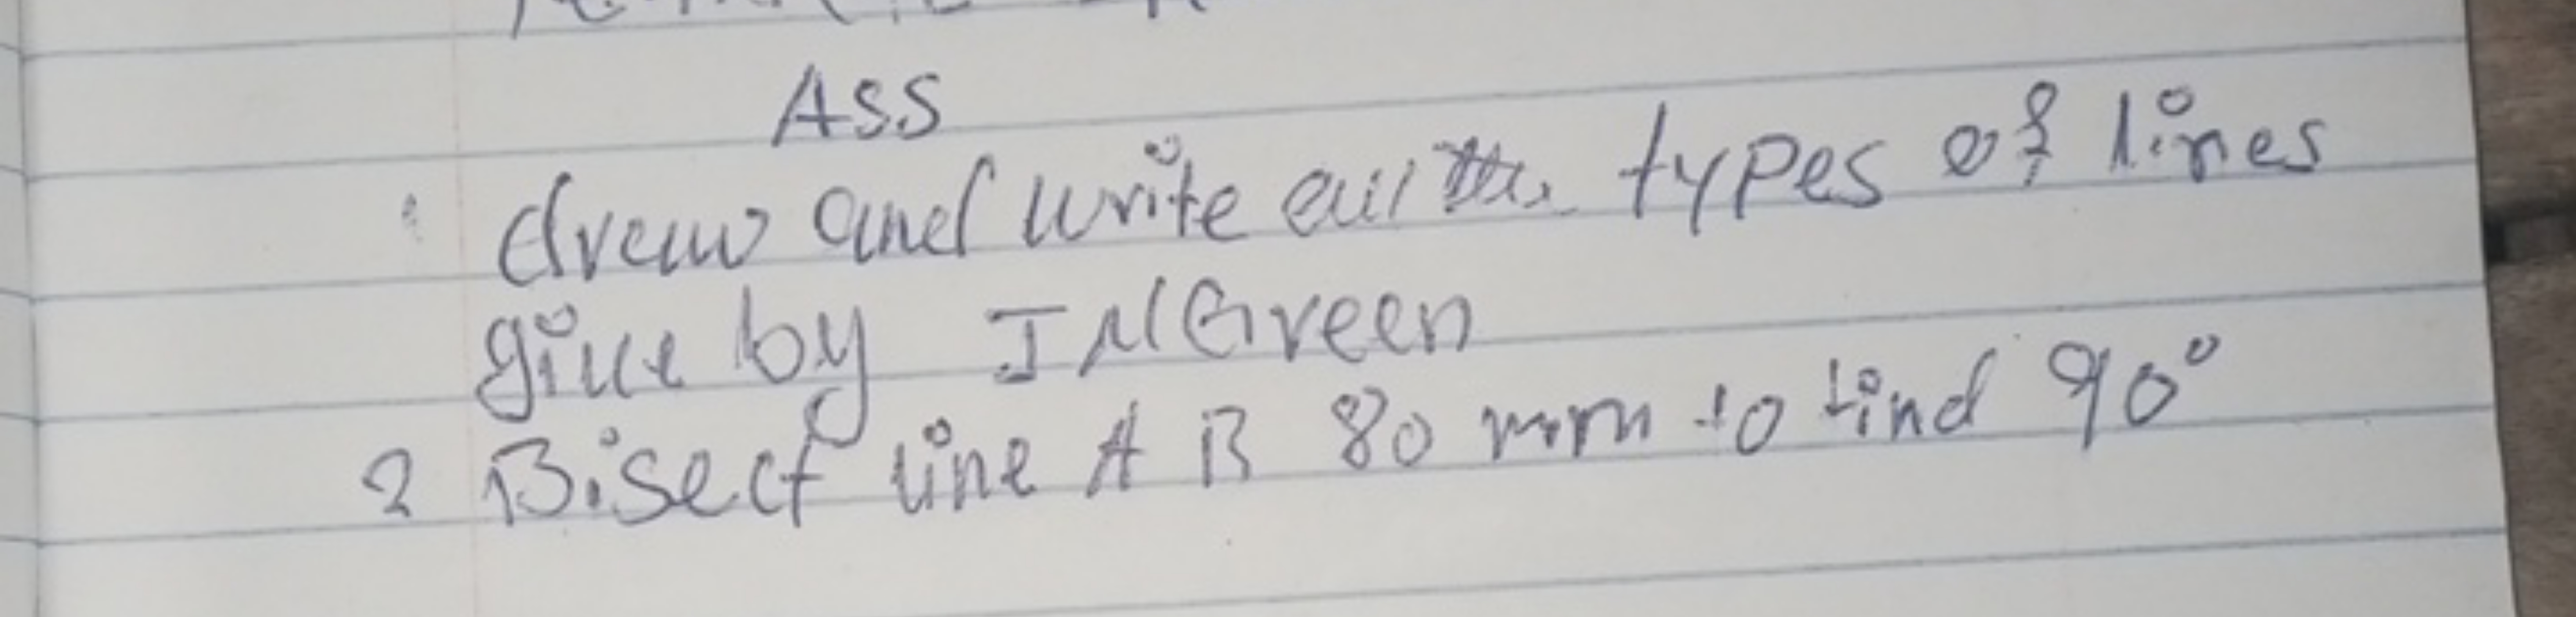 Ass
draw and write all types of lines
give by J N Green
2 Bisect line A B 80 mm to find 90°